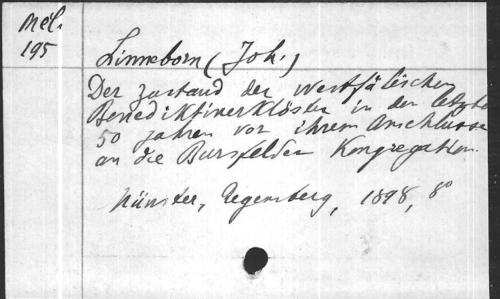 Mél.
195
Linneborn (Joh.)
Der zustand der westfälischen
Benediktinerklöster in den letzten
50 jahren vor ihrem Anschlusse
an die Bursfelder Kongregation.
Münster, Regensberg, 1898, 8°